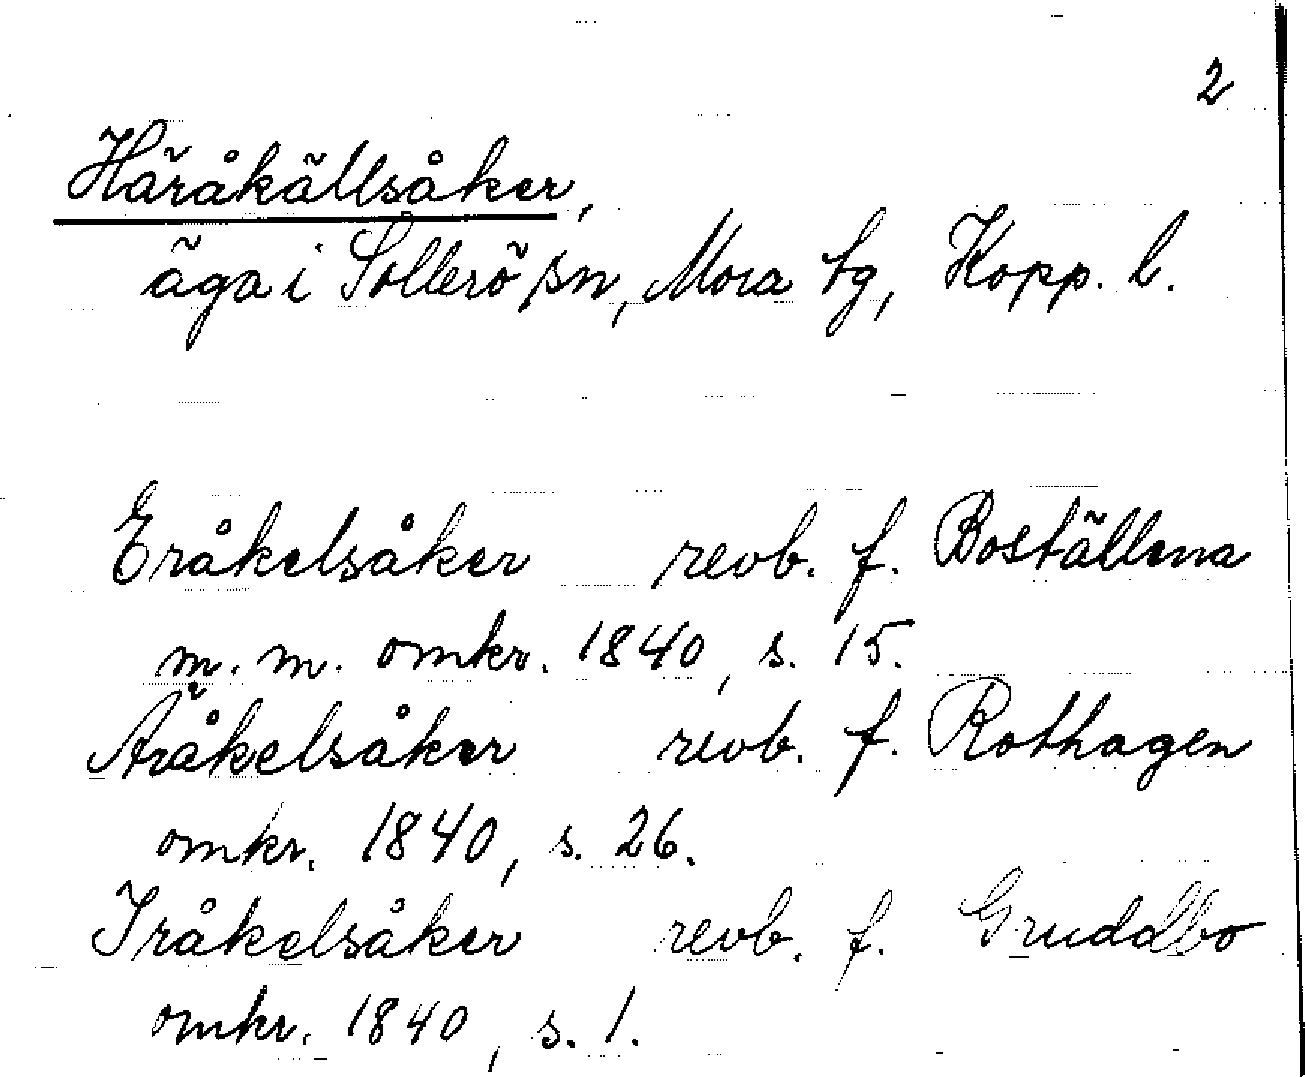 2
Häråkällsåker,
äga i Sollerö sn, Mora tg, Kopp. l.
Eråkelsåker revb. f. Boställena
m. m. omkr. 1840, s. 15.
Äråkelsåker revb. f. Rothagen
omkr. 1840, s. 26.
Iråkelsåker revb. f. Gruddbo
omkr. 1840, s. 1.